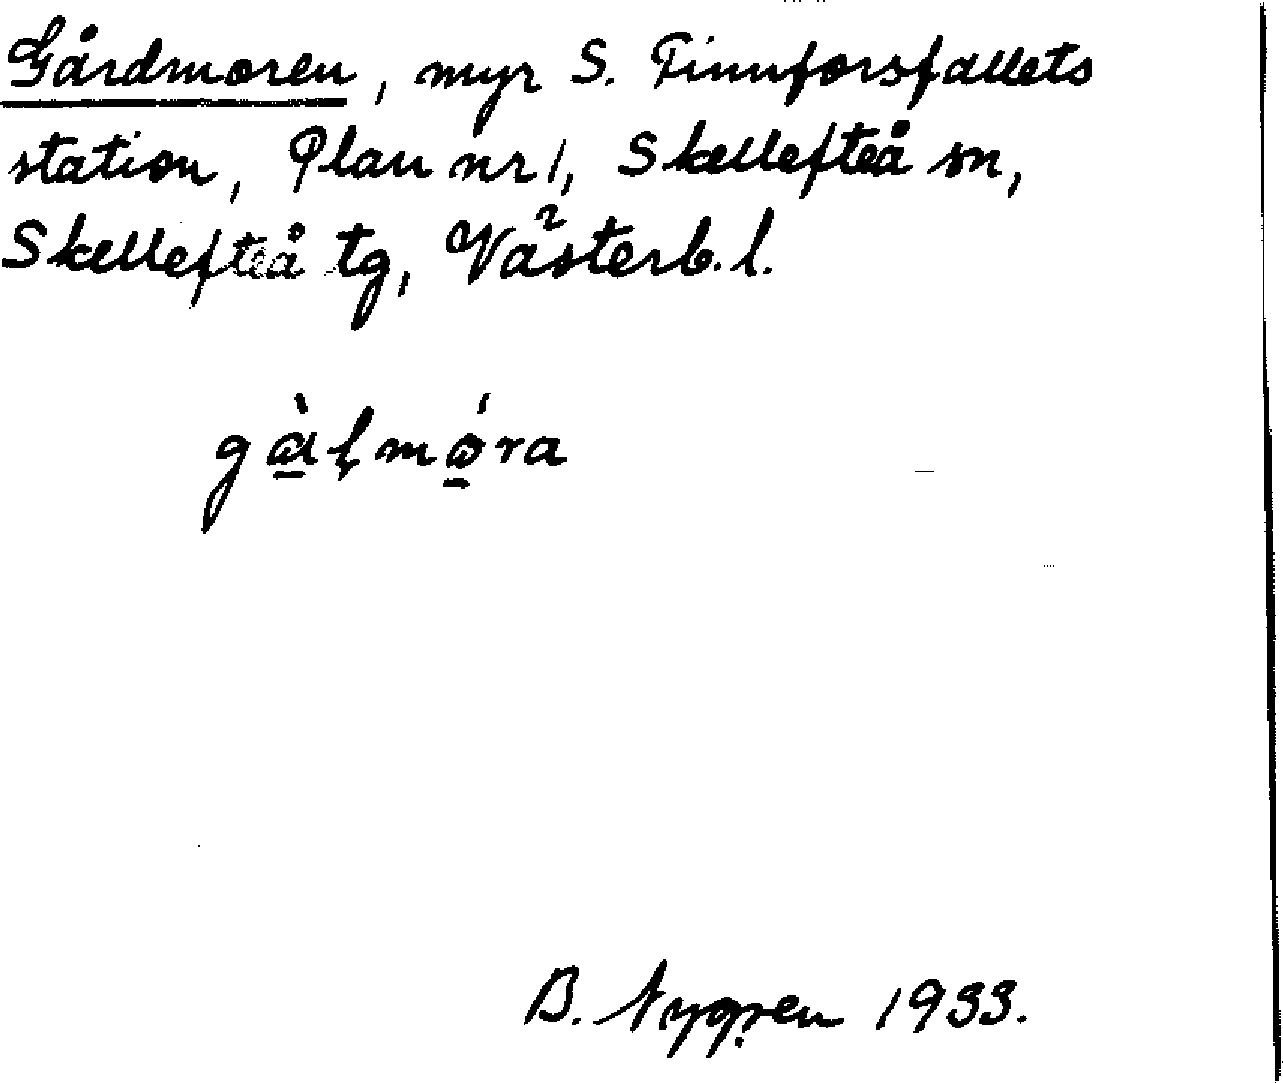 Gårdmoren, myr S. Finnforsfallets
station, Plan nr 1, Skellefteå sn,
Skellefteå tg, Västerb. l.
B. Nygren 1933.